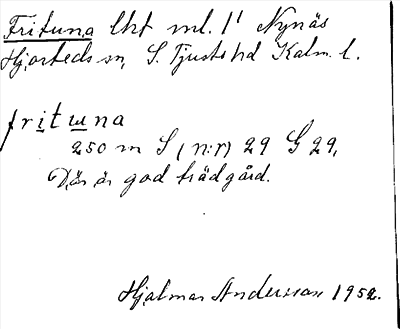 Frituna lht ml. 1' Nynäs
Hjorteds sn, S. Tjusts hd Kalm. l.
frituna
250 m S (n:r) 29 G 29,
Där är god trädgård.
Hjalmar Andersson 1952.